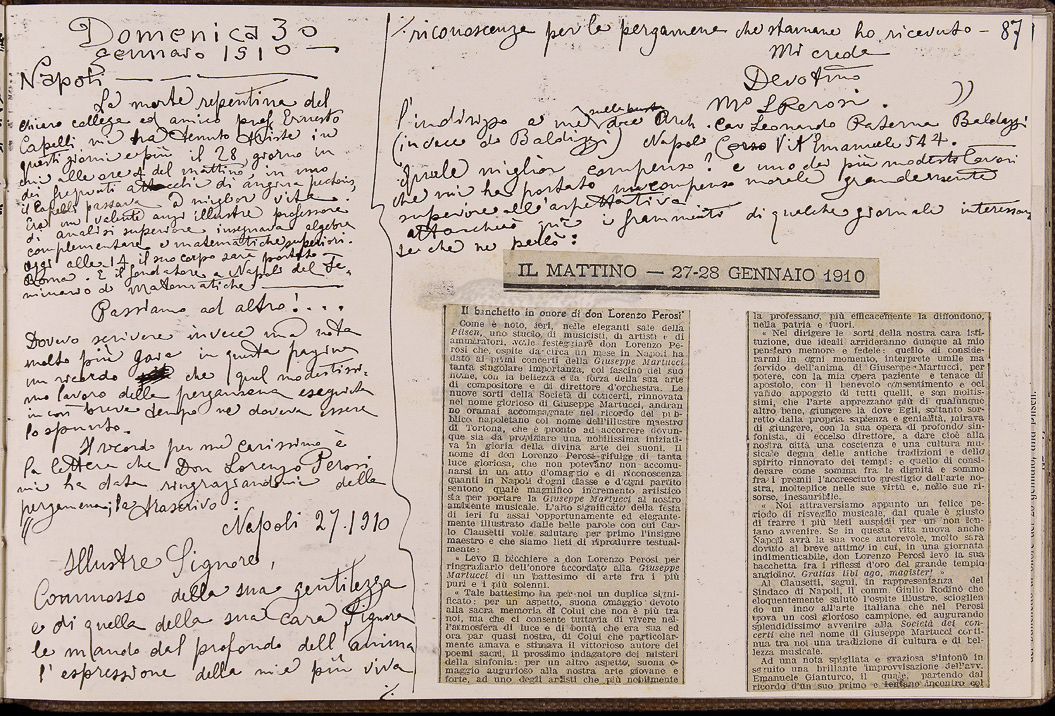 Domenica 30
gennaro 1910 —
Napoli
La morte repentina del
chiaro collega ed amico prof. Ernesto
Capelli mi ha tenuto triste in
questi giorni e più il 28 giorno in
cui alle ore 4 del mattino, in uno
dei frequenti attacchi di angina pectoris,
il Capelli passava a miglior vita.
Era un valente anzi illustre professore
di analisi superiore insegnava algebra
complementare e matematiche superiori.
Oggi alle 14 il suo corpo sarà portato
Roma. È il fondatore a Napoli del Se-
minario di Matematiche!
Passiamo ad altro! . . . .
Dovevo scrivere invece una nota
molto più gaia in questa pagina
un ricordo che quel modestissi-
mo lavoro della pergamena eseguita
in così breve tempo ne doveva essere
lo spunto.
Il ricordo per me carissimo è
la lettera che Don Lorenzo Perosi
mi ha data ringraziandomi della
pergamena; la trascrivo:
" Napoli 27.1910
Illustre Signore,
Commosso della sua gentilezza
e di quella della sua cara Signora
le mando dal profondo dell'anima
l'espressione della mia più viva
·/.
·/. riconoscenza per la pergamena che stamane ho ricevuto — 87
Mi creda
Devotmo
Mo LPerosi. "
l'indirizzo a me sulla busta dice Arch. Cav Leonardo Paterna Baldizzi
(invece di Baldizzi) Napoli Corso V.E Emanuele 544.
Quale miglior compenso? e uno dei più modesti lavori
che mi ha portato un compenso morale grandemente
superiore all'aspettativa!
Attacchiamo qui i frammenti di qualche giornale interessan
te che ne parlò:
IL MATTINO — 27-28 GENNAIO 1910
Il banchetto in onore di don Lorenzo Perosi
Come è noto, ieri, nelle eleganti sale della
Pilsen, uno stuolo di musicisti, di artisti e di
ammiratori, volle festeggiare don Lorenzo Pe-
rosi che, ospite da circa un mese in Napoli ha
dato ai primi concerti della Giuseppe Martucci
tanta singolare importanza, col fascino del suo
nome, con la bellezza e la forza della sua arte
di compositore e di direttore d'orchestra. Le
nuove sorti della Società di concerti, rinnovata
nel nome glorioso di Giuseppe Martucci, andran
no oramai accompagnate nel ricordo del pub-
blico napoletano col nome dell'illustre maestro
di Tortona, che è pronto ad accorrere dovun-
que sia da propiziare una nobilissima iniziati-
va in gloria della divina arte dei suoni. Il
nome di don Lorenzo Perosi rifulge di tanta
luce gloriosa, che non potevano non accomu-
narsi in un atto d'omaggio e di riconoscenza
quanti in Napoli d'ogni classe e d'ogni partito
sentono quale magnifico incremento artistico
sia per portare la Giuseppe Martucci al nostro
ambiente musicale. L'alto significato della festa
di ieri fu assai opportunamente ed elegante-
mente illustrato dalle belle parole con cui Car-
lo Clausetti volle salutare per primo l'insigne
maestro e che siamo lieti di riprodurre testual-
mente:
« Levo il bicchiere a don Lorenzo Perosi per
ringraziarlo dell'onore accordato alla Giuseppe
Martucci di un battesimo di arte fra i più
puri e i più solenni.
« Tale battesimo ha per noi un duplice signi-
ficato: per un aspetto, suona omaggio devoto
alla sacra memoria di Colui che non è più tra
noi, ma che ci consente tuttavia di vivere nel-
l'atmosfera di luce e di bontà che era sua ed
ora par quasi nostra, di Colui che particolar-
mente amava e stimava il vittorioso autore dei
poemi sacri, il prossimo indagatore dei misteri
della sinfonia: per un altro aspetto, suona o-
maggio augurioso alla nostra arte giovane e
forte, ad uno degli artisti che più nobilmente
la professano, più efficacemente la diffondono,
nella patria e fuori.
« Nel dirigere le sorti della nostra cara isti-
tuzione, due ideali arrideranno dunque al mio
pensiero memore e fedele: quello di conside-
rarmi in ogni momento, interprete umile ma
fervido dell'anima di Giuseppe Martucci, per
potere, con la mia opera paziente e tenace di
apostolo, con il benevolo consentimento e col
valido appoggio di tutti quelli, e son moltis-
simi, che l'Arte apprezzano più di qualunque
altro bene, giungere là dove Egli, soltanto sor-
retto dalla propria sapienza e genialità, mirava
di giungere, con la sua opera di profondo sin-
fonista, di eccelso direttore, a dare cioè alla
nostra città una coscienza e una cultura mu-
sicale degna delle antiche tradizioni e dello
spirito rinnovato dei tempi: e quello di consi-
derare come somma fra le dignità e sommo
fra i premii l'accresciuto prestigio dell'arte no-
stra, molteplice nelle sue virtù e, nelle sue ri-
sorse, inesauribile.
« Noi attraversiamo appunto un felice pe-
riodo di risveglio musicale, dal quale è giusto
di trarre i più lieti auspidi per un non lon-
tano avvenire. Se in questa vita nuova anche
Napoli avrà la sua voce autorevole, molto sarà
dovuto al breve attimo in cui, in una giornata
indimenticabile, don Lorenzo Perosi levò la sua
bacchetta fra i riflessi d'oro del grande tempio
angioino. Gratias tibi ago, magister! »
Al Clausetti, seguì, in rappresentanza del
Sindaco di Napoli, il comm. Giulio Rodinò che
eloquentemente salutò l'ospite illustre, scioglien
do un inno all'arte italiana che nel Perosi
trova un così glorioso campione, ed augurando
splendidissimo avvenire alla Società dei con-
certi che nel nome di Giuseppe Martucci conti-
nua tra noi una tradizione di cultura e di bel-
lezza musicale.
Ad una nota spigliata e graziosa s'intonò in
seguito una brillante improvvisazione dell'avv.
Emanuele Gianturco, il quale, partendo dal
ricordo d'un suo primo e incontro col